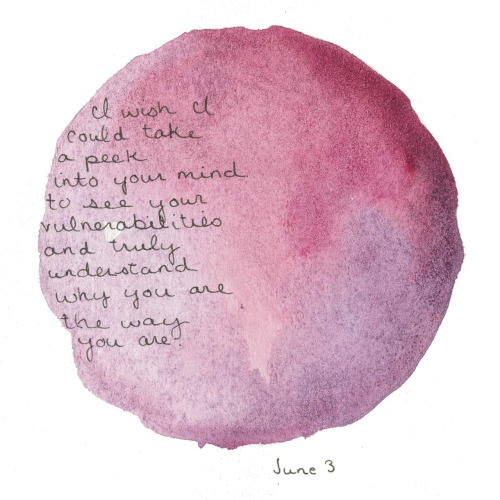 I wish I
could take
a peek
into your mind
to see your
vulnerabilities
and truly
understand
why you are
the way
you are.
June 3